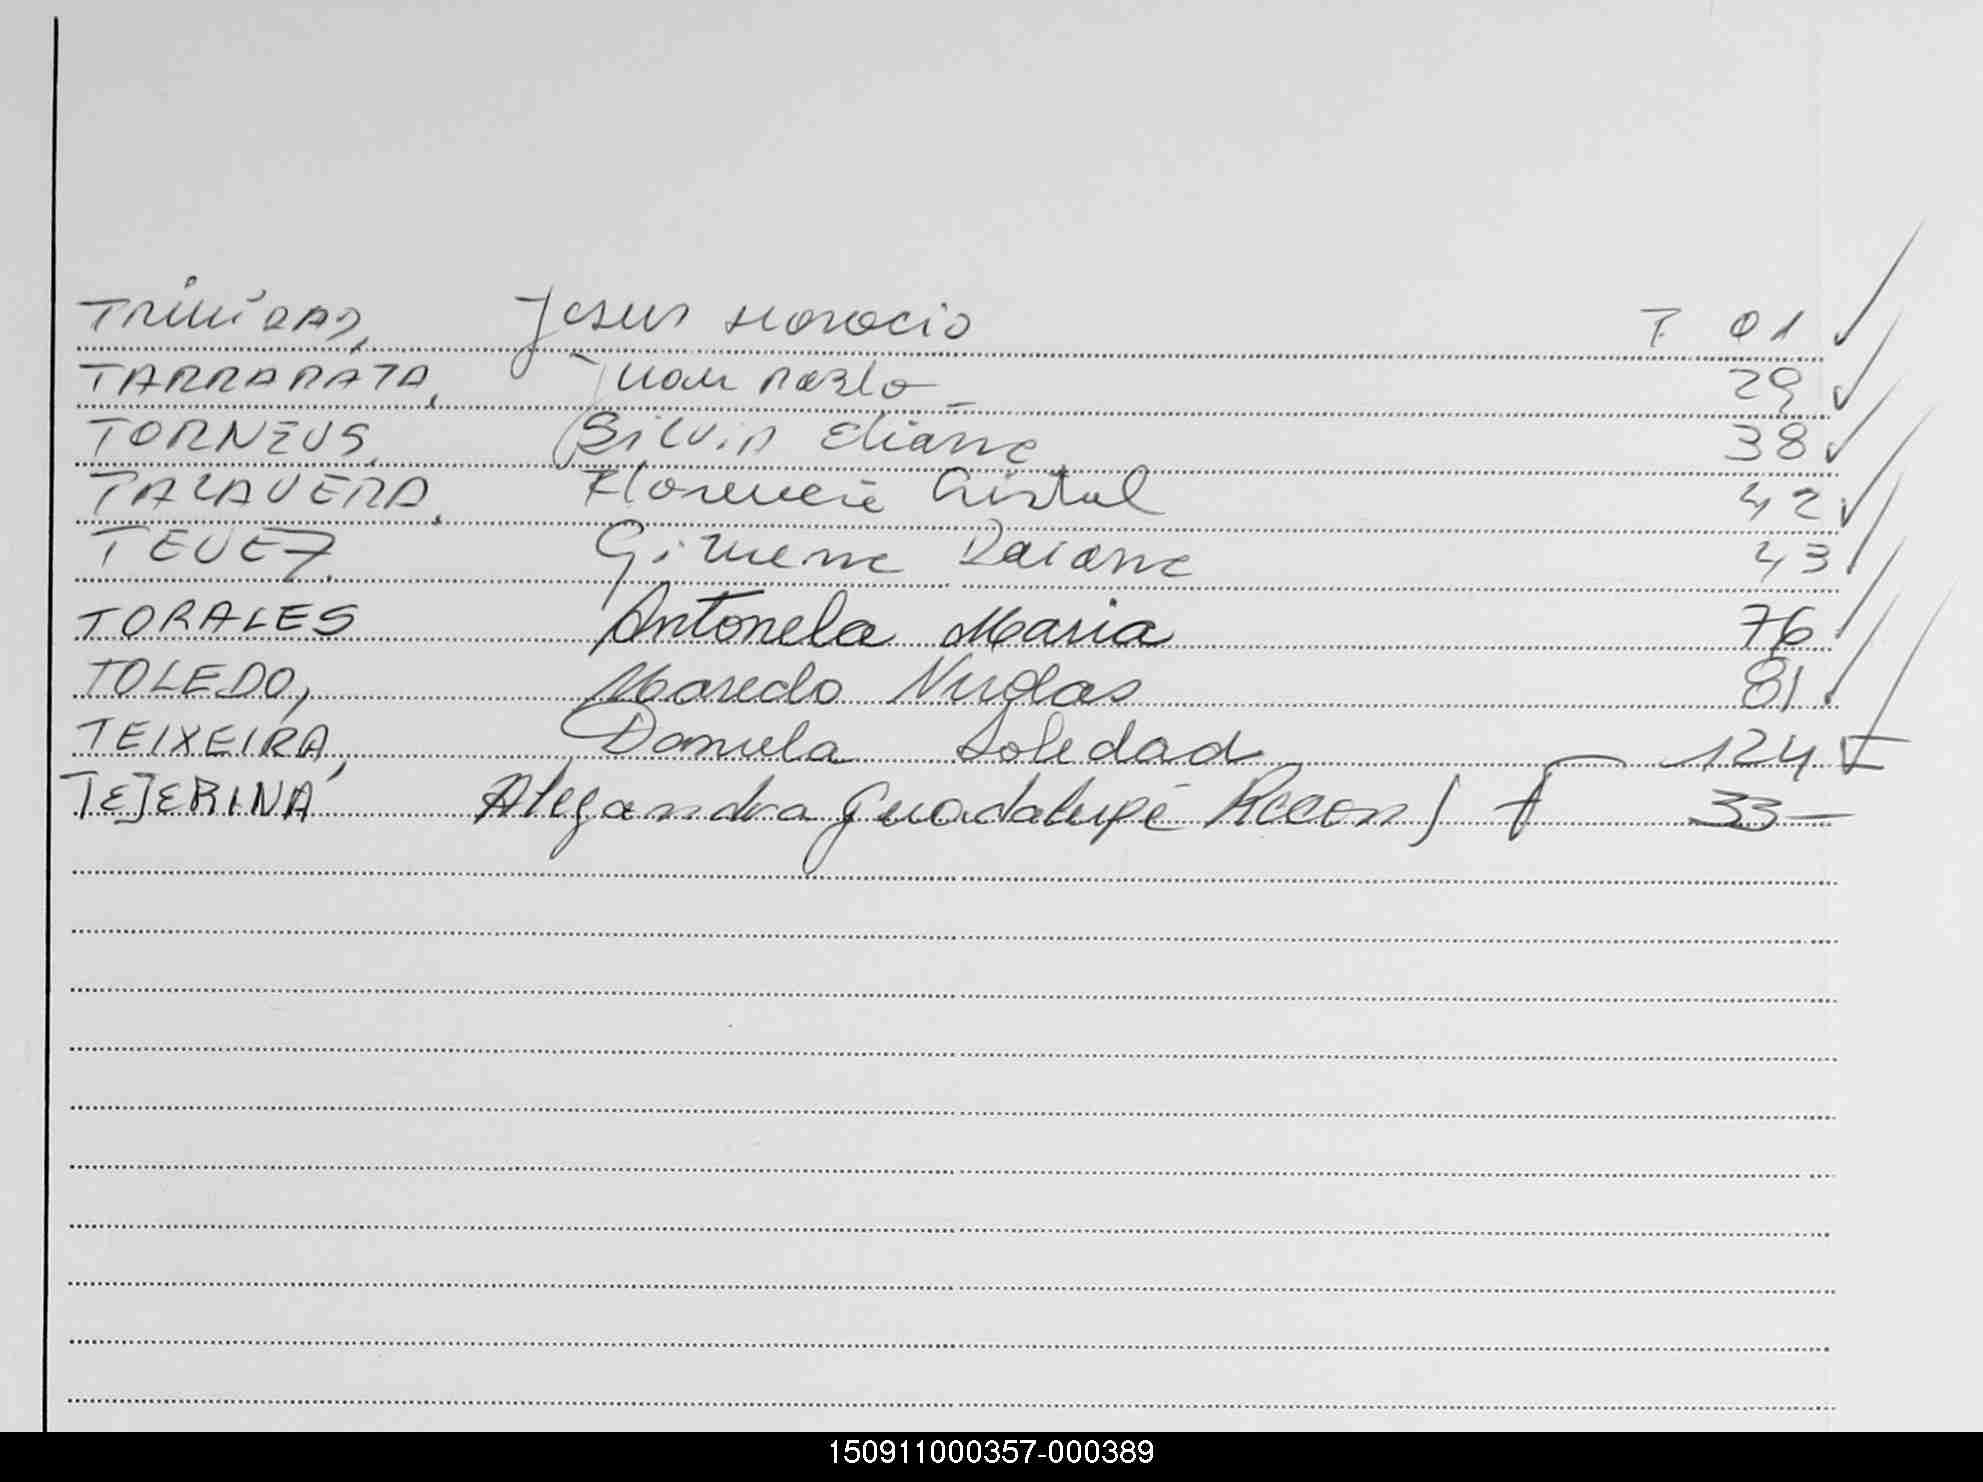 TRINIDAD, Jesus Horacio T. 01
TARRARATA, Juan Pablo 29
TORNEUS, Silvia Eliana 38
TALAVERA, Florencia Cristal 42
TEVEZ Gimena Daiana 43
TORALES Antonela Maria 76
TOLEDO, Marcelo Nicolas 81
TEIXEIRA, Daniela Soledad 124
TEJERINA Alejandra Guadalupe 33
150911000357-000389